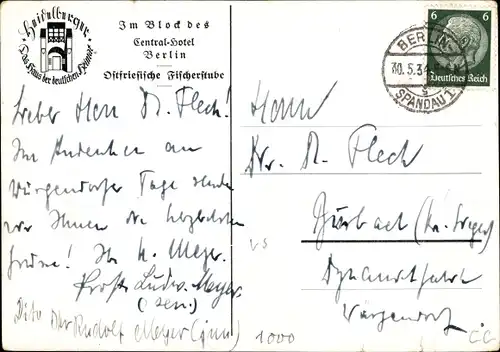 Heidelberger
Das Haus der deutschen Heimat
Im Block des
Central-Hotel
Berlin
Ostfriesische Fischerstube
Lieber Herr Dr. Flech!
Im Andenken an
Würgendorfer Tage senden
wir Ihnen die herzlichsten
Grüße! Ihr H. Meyer.
Prosit Ludw. Meyer.
(sen.)
Dito Dr Rudolf Meyer (jun.)
6 6
Deutsches Reich
BERLIN-
30.5.3
SPANDAU 1
s
Herrn
Dr. R. Flech
Burbach (Kr. Siegen)
Dynamitfabrik
Würgendorf
VS
1000
CC